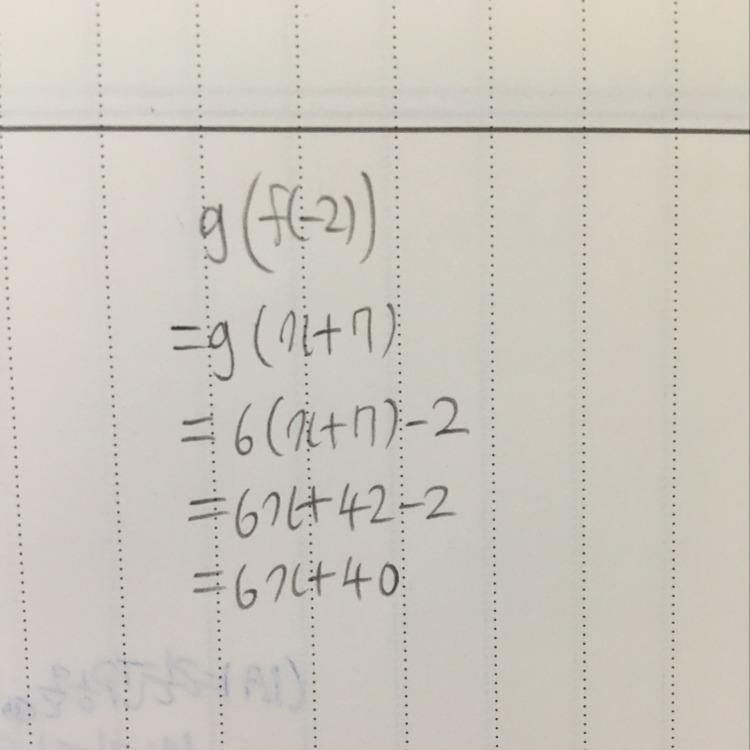 g(f(-2))
=g(x+7)
=6(x+7)-2
=6x+42-2
=6x+40